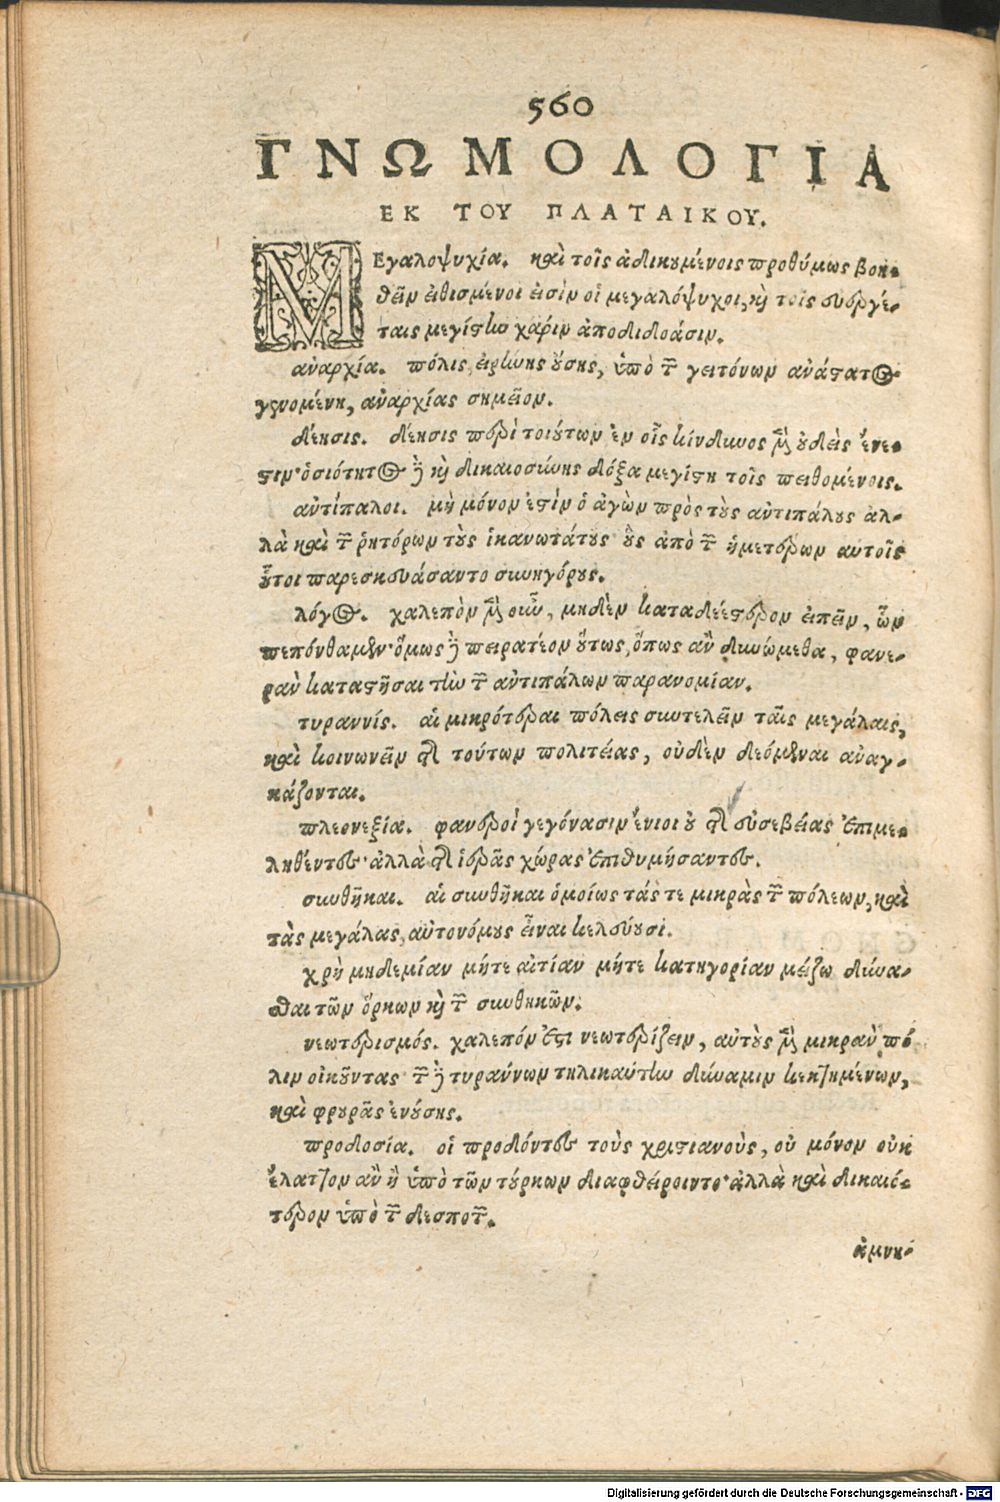 560
ΓΝΩΜΟΛΟΓΙΑ
ΕΚ ΤΟΥ ΠΛΑΤΑΙΚΟΥ.
ΜΕγαλοψυχία. καὶ τοῖς ἀδικουμένοις προθύμως βοη-
θεῖν εἰθισμένοι εἰσὶν οἱ μεγαλόψυχοι, καὶ τοῖς εὐεργέ-
ταις μεγίστην χάριν ἀποδιδοάσιν.
ἀναρχία. πόλις, εἰρήνης οὔσης, ὑπὸ τῶν γειτόνων ἀνάστατος
γενομένη, ἀναρχίας σημεῖον.
δέησις. δέησις περὶ τοιούτων ἐν οἷς κίνδυνος μὲν οὐδεὶς ἔνε-
στιν· ὁσιότητος δὲ καὶ δικαιοσύνης δόξα μεγίστη τοῖς πειθομένοις.
ἀντίπαλοι. μὴ μόνον ἐστὶν ὁ ἀγὼν πρὸς τοὺς ἀντιπάλους ἀλ-
λὰ καὶ τῶν ῥητόρων τοὺς ἱκανωτάτους οὓς ἀπὸ τῶν ἡμετέρων αὐτοῖς
οὗτοι παρεσκευάσαντο συνηγόρους.
λόγος. χαλεπὸν μὲν οὖν, μηδὲν καταδεέστερον εἰπεῖν, ὧν
πεπόνθαμεν· ὅμως δὲ πειρατέον οὕτως, ὅπως ἂν δυνώμεθα, φανε-
ρὰν καταστῆσαι τὴν τῶν ἀντιπάλων παρανομίαν.
τυραννίς. αἱ μικρότεραι πόλεις συντελεῖν ταῖς μεγάλαις,
καὶ κοινωνεῖν τῆς τούτων πολιτείας, οὐδὲν δεόμεναι ἀναγ-
κάζονται.
πλεονεξία. φανεροὶ γεγόνασιν ἔνιοι οὐ τῆς εὐσεβείας ἐπιμε-
ληθέντες· ἀλλὰ τῆς ἱερᾶς χώρας ἐπιθυμήσαντες.
συνθῆκαι. αἱ συνθῆκαι ὁμοίως τάς τε μικρὰς τῶν πόλεων, καὶ
τὰς μεγάλας, αὐτονόμους εἶναι κελεύουσι.
χρὴ μηδεμίαν μήτε αἰτίαν μήτε κατηγορίαν μείζω δύνα-
σθαι τῶν ὅρκων καὶ τῶν συνθηκῶν.
νεωτερισμός. χαλεπόν ἐστι νεωτερίζειν, αὐτοὺς μὲν μικρὰν πό
λιν οἰκοῦντας τῶν δὲ τυράννων τηλικαύτην δύναμιν κεκτημένων,
καὶ φρουρᾶς ἐνούσης.
προδοσία. οἱ προδόντες τοὺς χριστιανοὺς, οὐ μόνον οὐκ
ἔλαττον ἂν ἢ ὑπὸ τῶν τούρκων διαφθείροιντο· ἀλλὰ καὶ δικαιό-
τερον ὑπὸ τῶν δεσποτῶν.
ἀμνη-
Digitalisierung gefördert durch die Deutsche Forschungsgemeinschaft - DFG